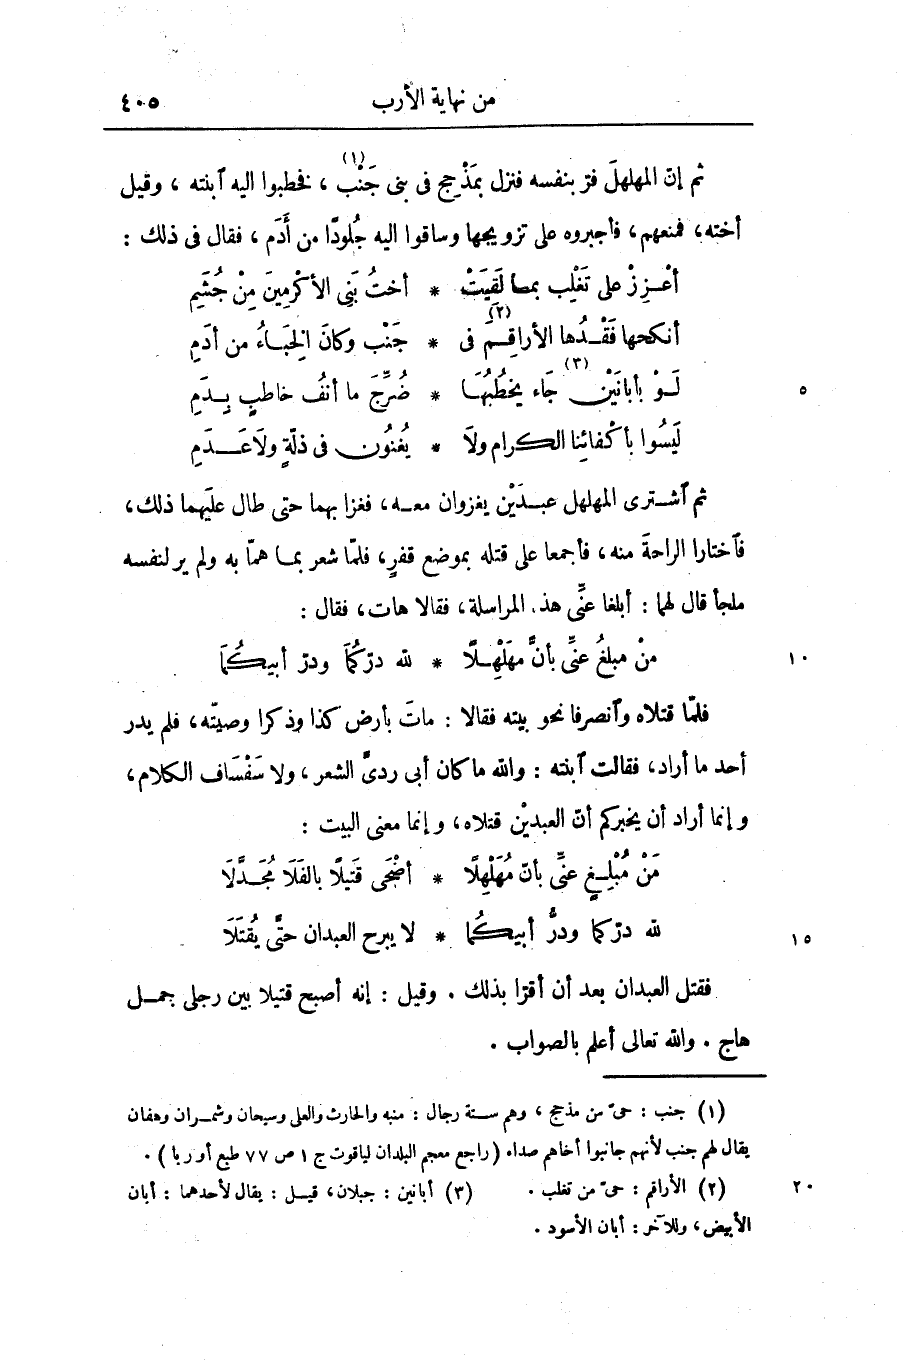 من نهاية الأرب ٤٠٥
ثم إنّ المهلهلَ فرّ بنفسه فنزل بمَذْحِج فى بنى جَنْب (١) ، فخطبوا اليه ٱبنته ، وقيل
أخته، فمنعهم، فأجبروه على تزويجها وساقوا اليه جُلودًا من أَدَم ، فقال فى ذلك :
أعْزِزْ على تَغْلِب بمـا لَقِيَتْ * أختُ بَنِى الأكْرمِينَ مِنْ جُشَمِ
أنكحها فَقْـدُها الأراقِـمَ (٢) فى * جَنْب وكانَ الحِبَـاءُ من أدَمِ
لَـوْ بأبانَيْن (٣) جَاء يخطُبُهَـا * ضُرِّجَ ما أنفُ خاطبٍ بِـدَمِ ٥
لَيسُوا بأكْفائِنا الكرام ولَا * يُغنُون فى ذلّةٍ ولَا عَـدَمِ
ثم ٱشـترى المهلهل عبـدَيْن يغزوان معـه، فغزا بهما حتى طال عليَهما ذلك،
فٱختارا الراحةَ منه، فأجمعا على قتله بموضع قفرٍ، فلمّا شعر بمـا همّا به ولم ير لنفسه
ملجأ قال لهما : أبلغا عنِّى هذه المراسلة، فقالا هات، فقال :
منْ مبلغُ عنِّى بأنَّ مهَلْهِـلًا * لله درّكُمَا ودرّ أبيكُمَا ١٠
فلمّا قتلاه وٱنصرفا نحو بيته فقالا : ماتَ بأرض كذا وذكرا وصيتّه، فلم يدر
أحد ما أراد، فقالت ٱبنته : والله ما كان أبى ردىَّ الشعر، ولا سَفْسَاف الكلام،
وإنما أراد أن يخبركم أنّ العبديْن قتلاه، وإنما معنى البيت :
مَنْ مُبْلِـغٍ عنِّى بأنّ مُهَلْهِلًا * أضْحَى قَتيلًا بالفَلَا مُجَـدَّلَا
لله درّكما ودرُّ أبيكُما * لا يبرح العبدان حتَّى يُقتَلَا ١٥
فقتل العبدان بعد أن أقرّا بذلك . وقيل : إنه أصبح قتيلا بين رجلى جمـل
هاج . والله تعالى أعلم بالصواب .
(١) جنب : حىّ من مذحج ، وهم سـتة رجال : منبه والحارث والعلى وسيحان وشمـران وهفان
يقال لهم جنب لأنهم جانبوا أخاهم صداء (راجع معجم البلدان لياقوت ج ١ ص ٧٧ طبع أوربا) .
(٢) الأراقم : حىّ من تغلب . (٣) أبانين : جبلان، قيـل : يقال لأحدهما : أبان ٢٠
الأبيض، وللآخر : أبان الأسود .